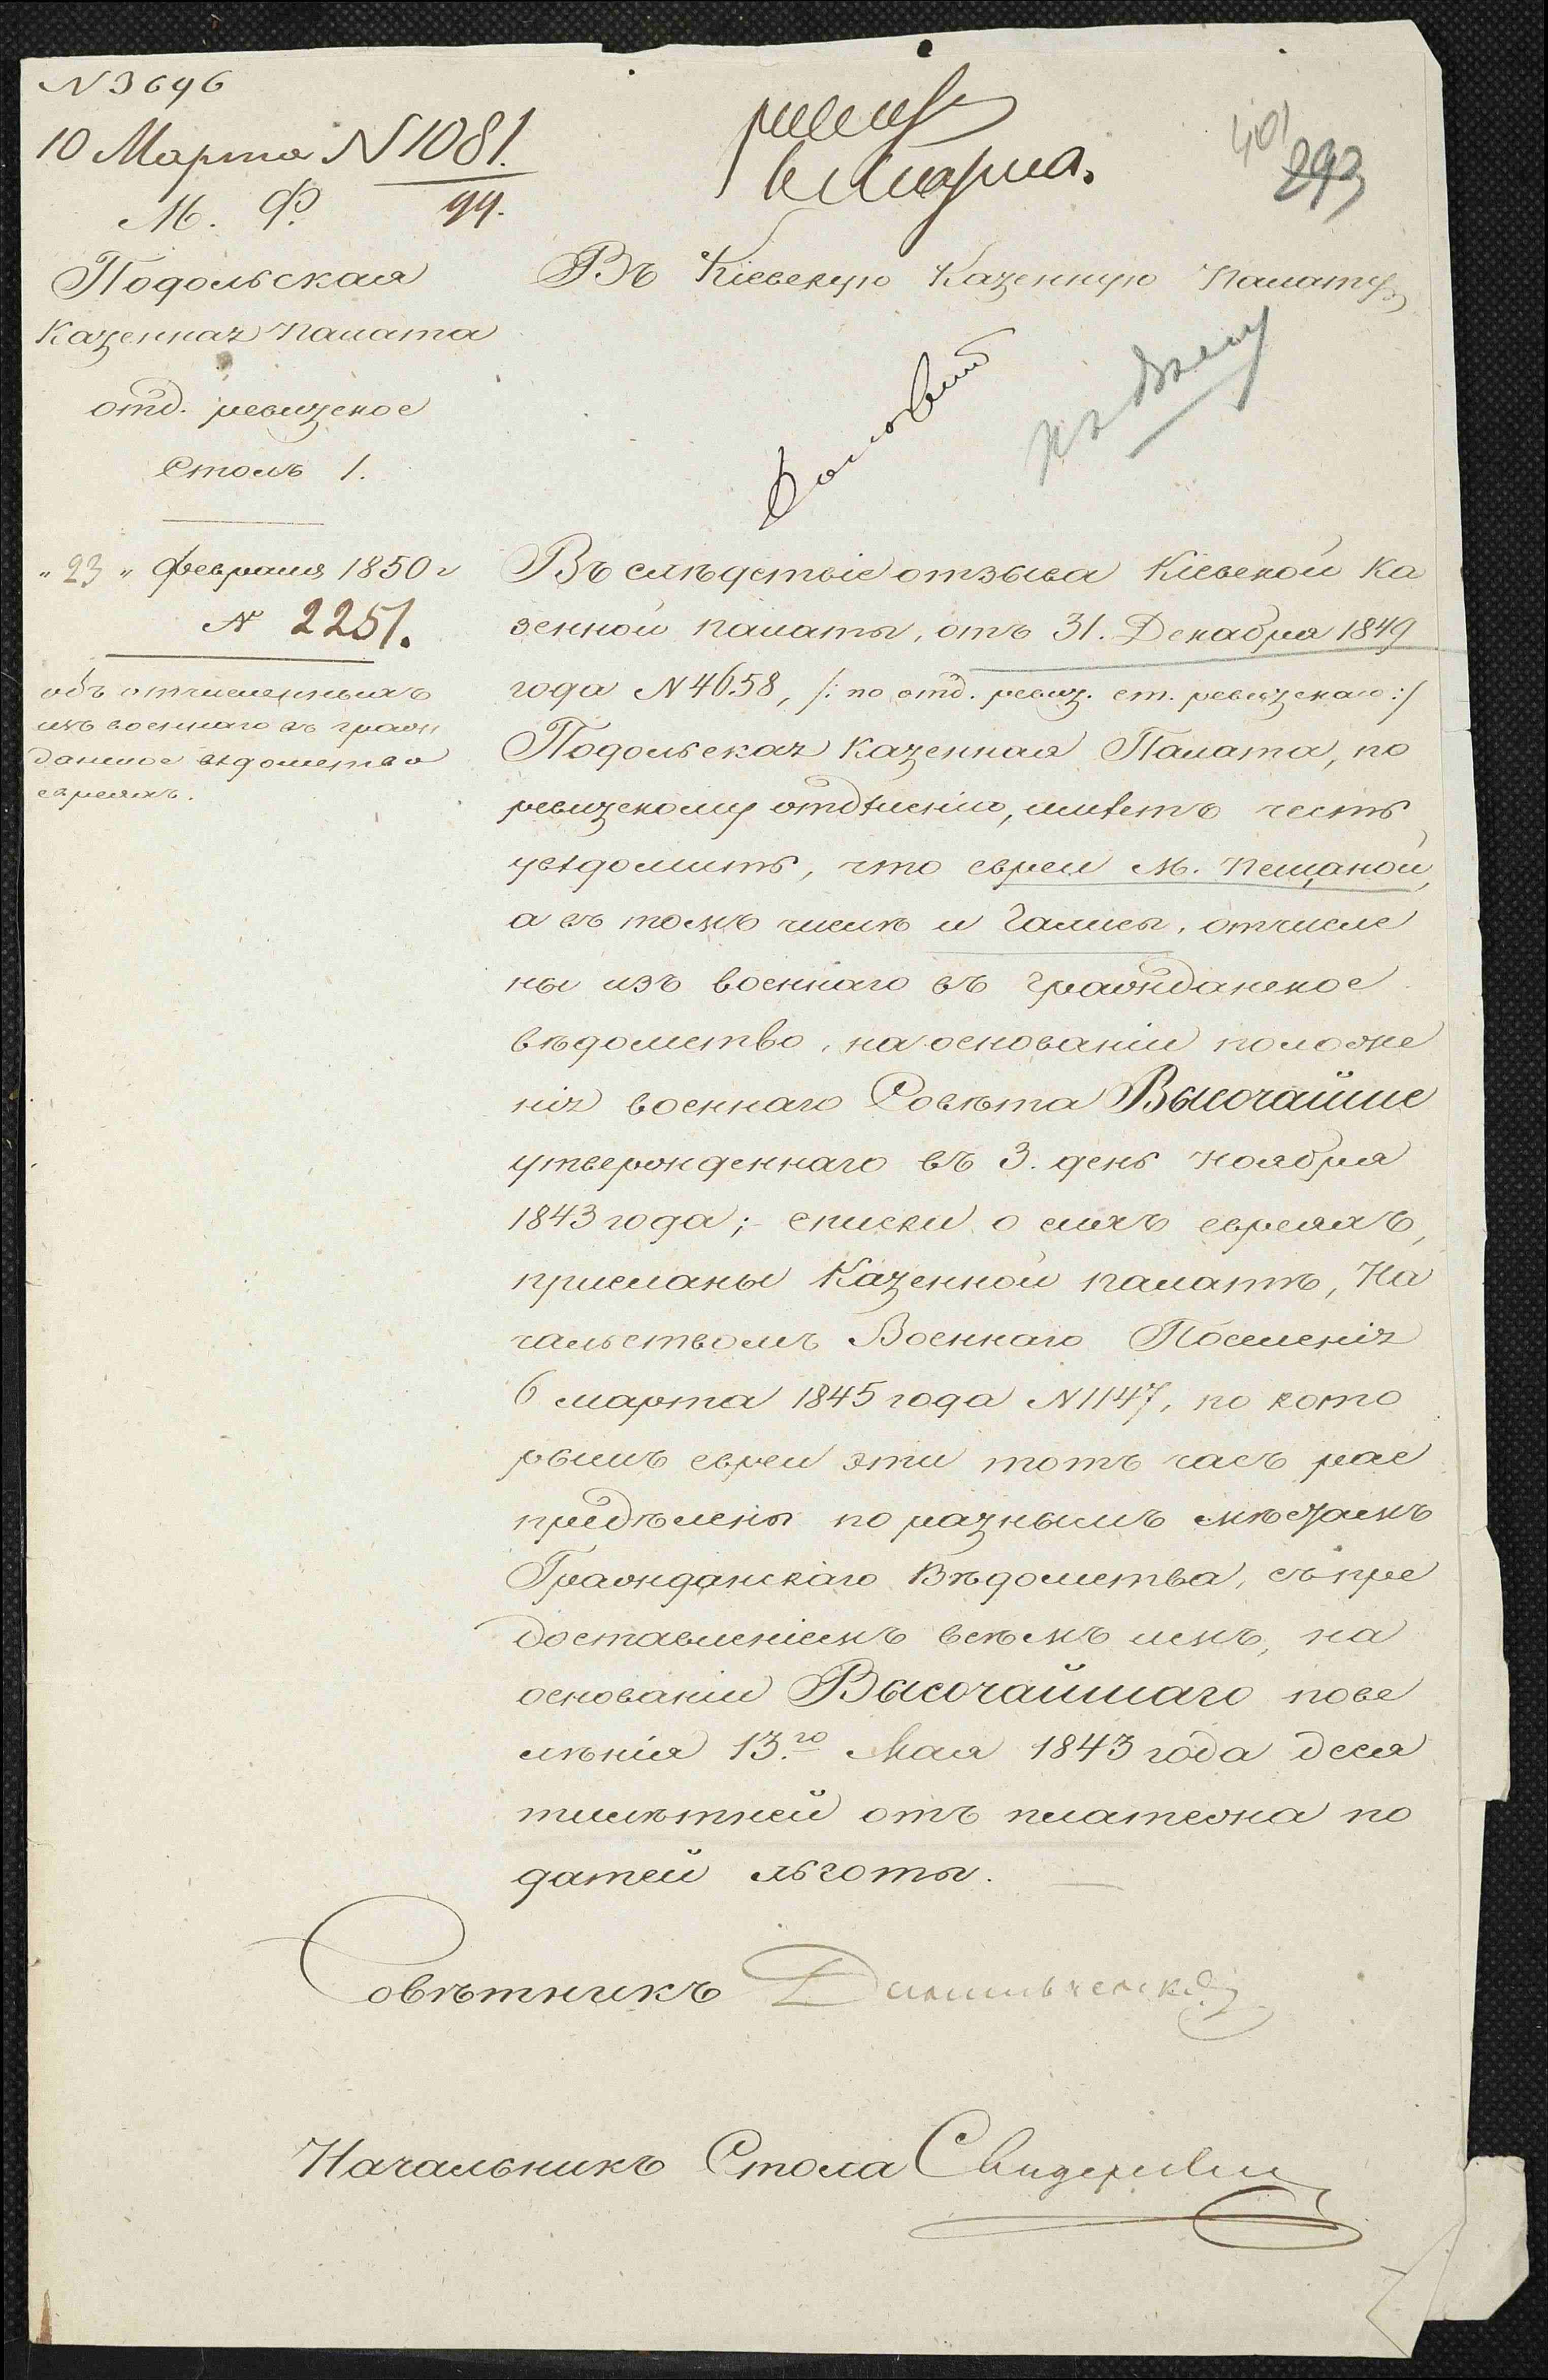 N 3696
10 Марта N 1081.
М. Ф. 99.
Подольская
Казенная Палата
отд. ревизское
Столъ 1.
"23" февраля 1850 г
N 2251.
объ отчисленныхъ
изъ военнаго въ граж
данское вѣдомство
евреяхъ.
марта.
401
293
Въ Кіевскую Казенную Палату
къ дѣлу
Въ слѣдствіе отзыва Кіевской Ка
зенной палаты, отъ 31. Декабря 1849
года N 4658, /: по отд. ревиз. ст. ревизскаго :/
Подольская Казенная Палата, по
ревизскому отдѣленію, имѣетъ честь
увѣдомить, что евреи М. Пещаной,
а въ томъ числѣ и Галисы, отчисле
ны изъ военнаго въ гражданское
вѣдомство, на основаніи положе
нія военнаго Совѣта Высочайше
утвержденнаго въ 3. день Ноября
1843 года; - списки о сихъ евреяхъ,
присланы Казенной палатѣ, На
чальствомъ Военнаго Поселенія
6 марта 1845 года N 1147, по кото
рымъ евреи эти тотъ часъ рас
предѣлены по разнымъ мѣстамъ
Гражданскаго Вѣдомства, съ пре
доставленіемъ всѣмъ имъ, на
основаніи Высочайшаго пове
лѣнія 13.го Мая 1843 года деся
тилѣтней отъ платежа по
датей льготы.
Совѣтникъ
Начальникъ Стола Свидерскій